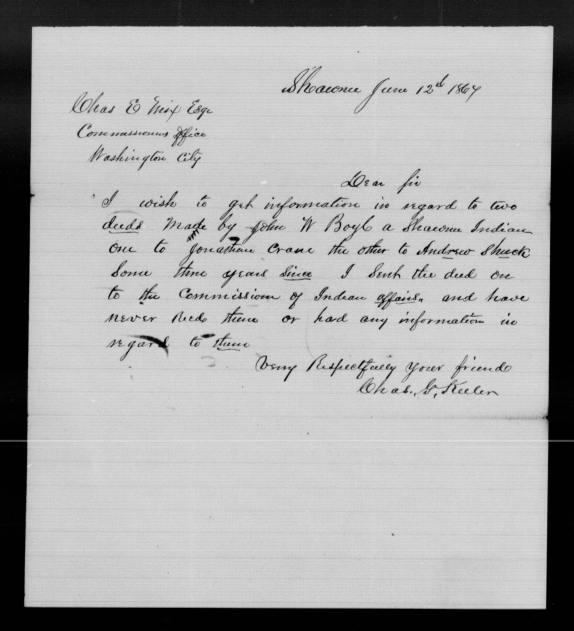 Shawnee June 12th 1867
Chas E Mix Esqr
Commissioners office
Washington City
Dear Sir
I wish to get information in regard to two
deeds Made by John W Boyl a Shawnee Indian
One to Jonathan Crane the other to Andrew Shuck
Some three years Since I Sent the deed on
to the Commissione of Indian affairs, and have
never Recd them or had any information in
regard to them
Very Respectfully your friend
Chas. G. Keeler